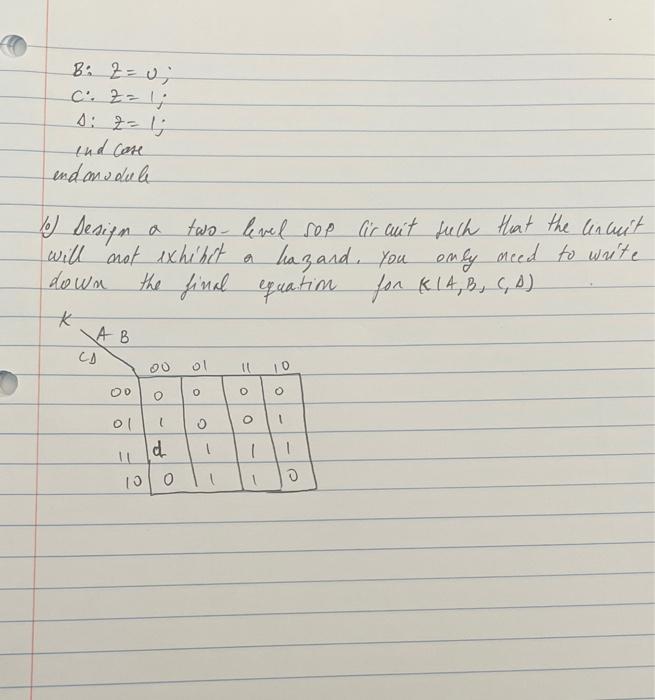 B: Z = 0;
C: Z = 1;
D: Z = 1;
end case
endmodule
b) Design a two-level SOP circuit such that the circuit
will not exhibit a hazard. You only need to write
down the final equation for K(A, B, C, D)
K
A B
CD
00 01 11 10
00 0 0 0 0
01 1 0 0 1
11 d 1 1 1
10 0 1 1 0